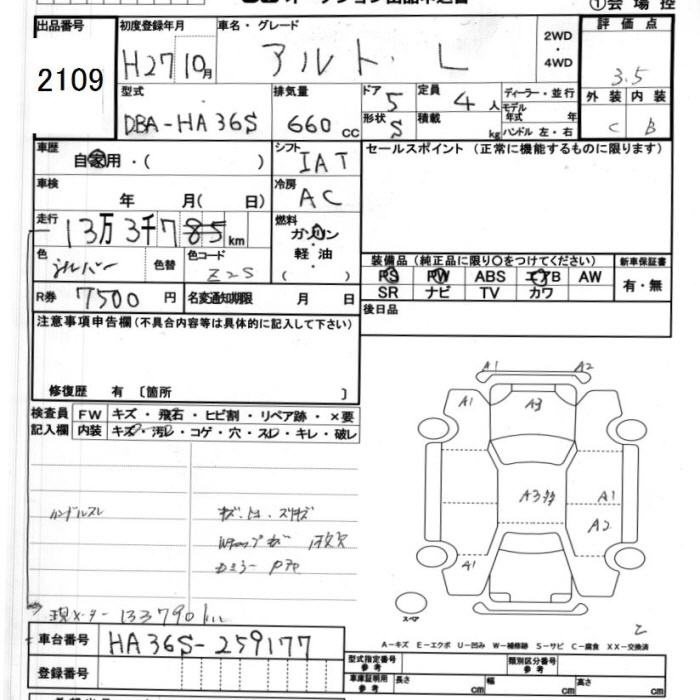 ①会場控
出品番号
2109
初度登録年月
H27 10月
車名・グレード
アルト・L
2WD
・
4WD
評価点
3.5
外装 内装
C B
型式
DBA-HA36S
排気量
660 cc
ドア 5
形状 S
定員 4 人
積載 kg
ディーラー・並行
モデル
年式 年
ハンドル 左・右
車歴
自家用・( )
シフト
IAT
車検
年 月( 日)
冷房
AC
走行
13万3千785 km
燃料
ガソリン
・
軽油
・
( )
色
シルバー
色替
色コード
Z2S
R券 7500 円
名変通知期限 月 日
セールスポイント (正常に機能するものに限ります)
装備品 (純正品に限り○をつけてください)
PS PW ABS エアB AW
SR ナビ TV カワ
新車保証書
有・無
後日品
注意事項申告欄(不具合内容等は具体的に記入して下さい)
修復歴 有 〔箇所 〕
検査員
記入欄
FW キズ・飛石・ヒビ割・リペア跡・×要
内装 キズ・汚レ・コゲ・穴・スレ・キレ・破レ
ハンドルスレ
A1 A2
A1 A3
A3
A1
A2
A1
スペア
現メーター 133790km
車台番号 HA36S-259177
登録番号
A-キズ E-エクボ U-凹み W-補修跡 S-サビ C-腐食 XX-交換済
型式指定番号
参考
類別区分番号
参考
車庫証明用
参考
長さ cm 幅 cm 高さ cm